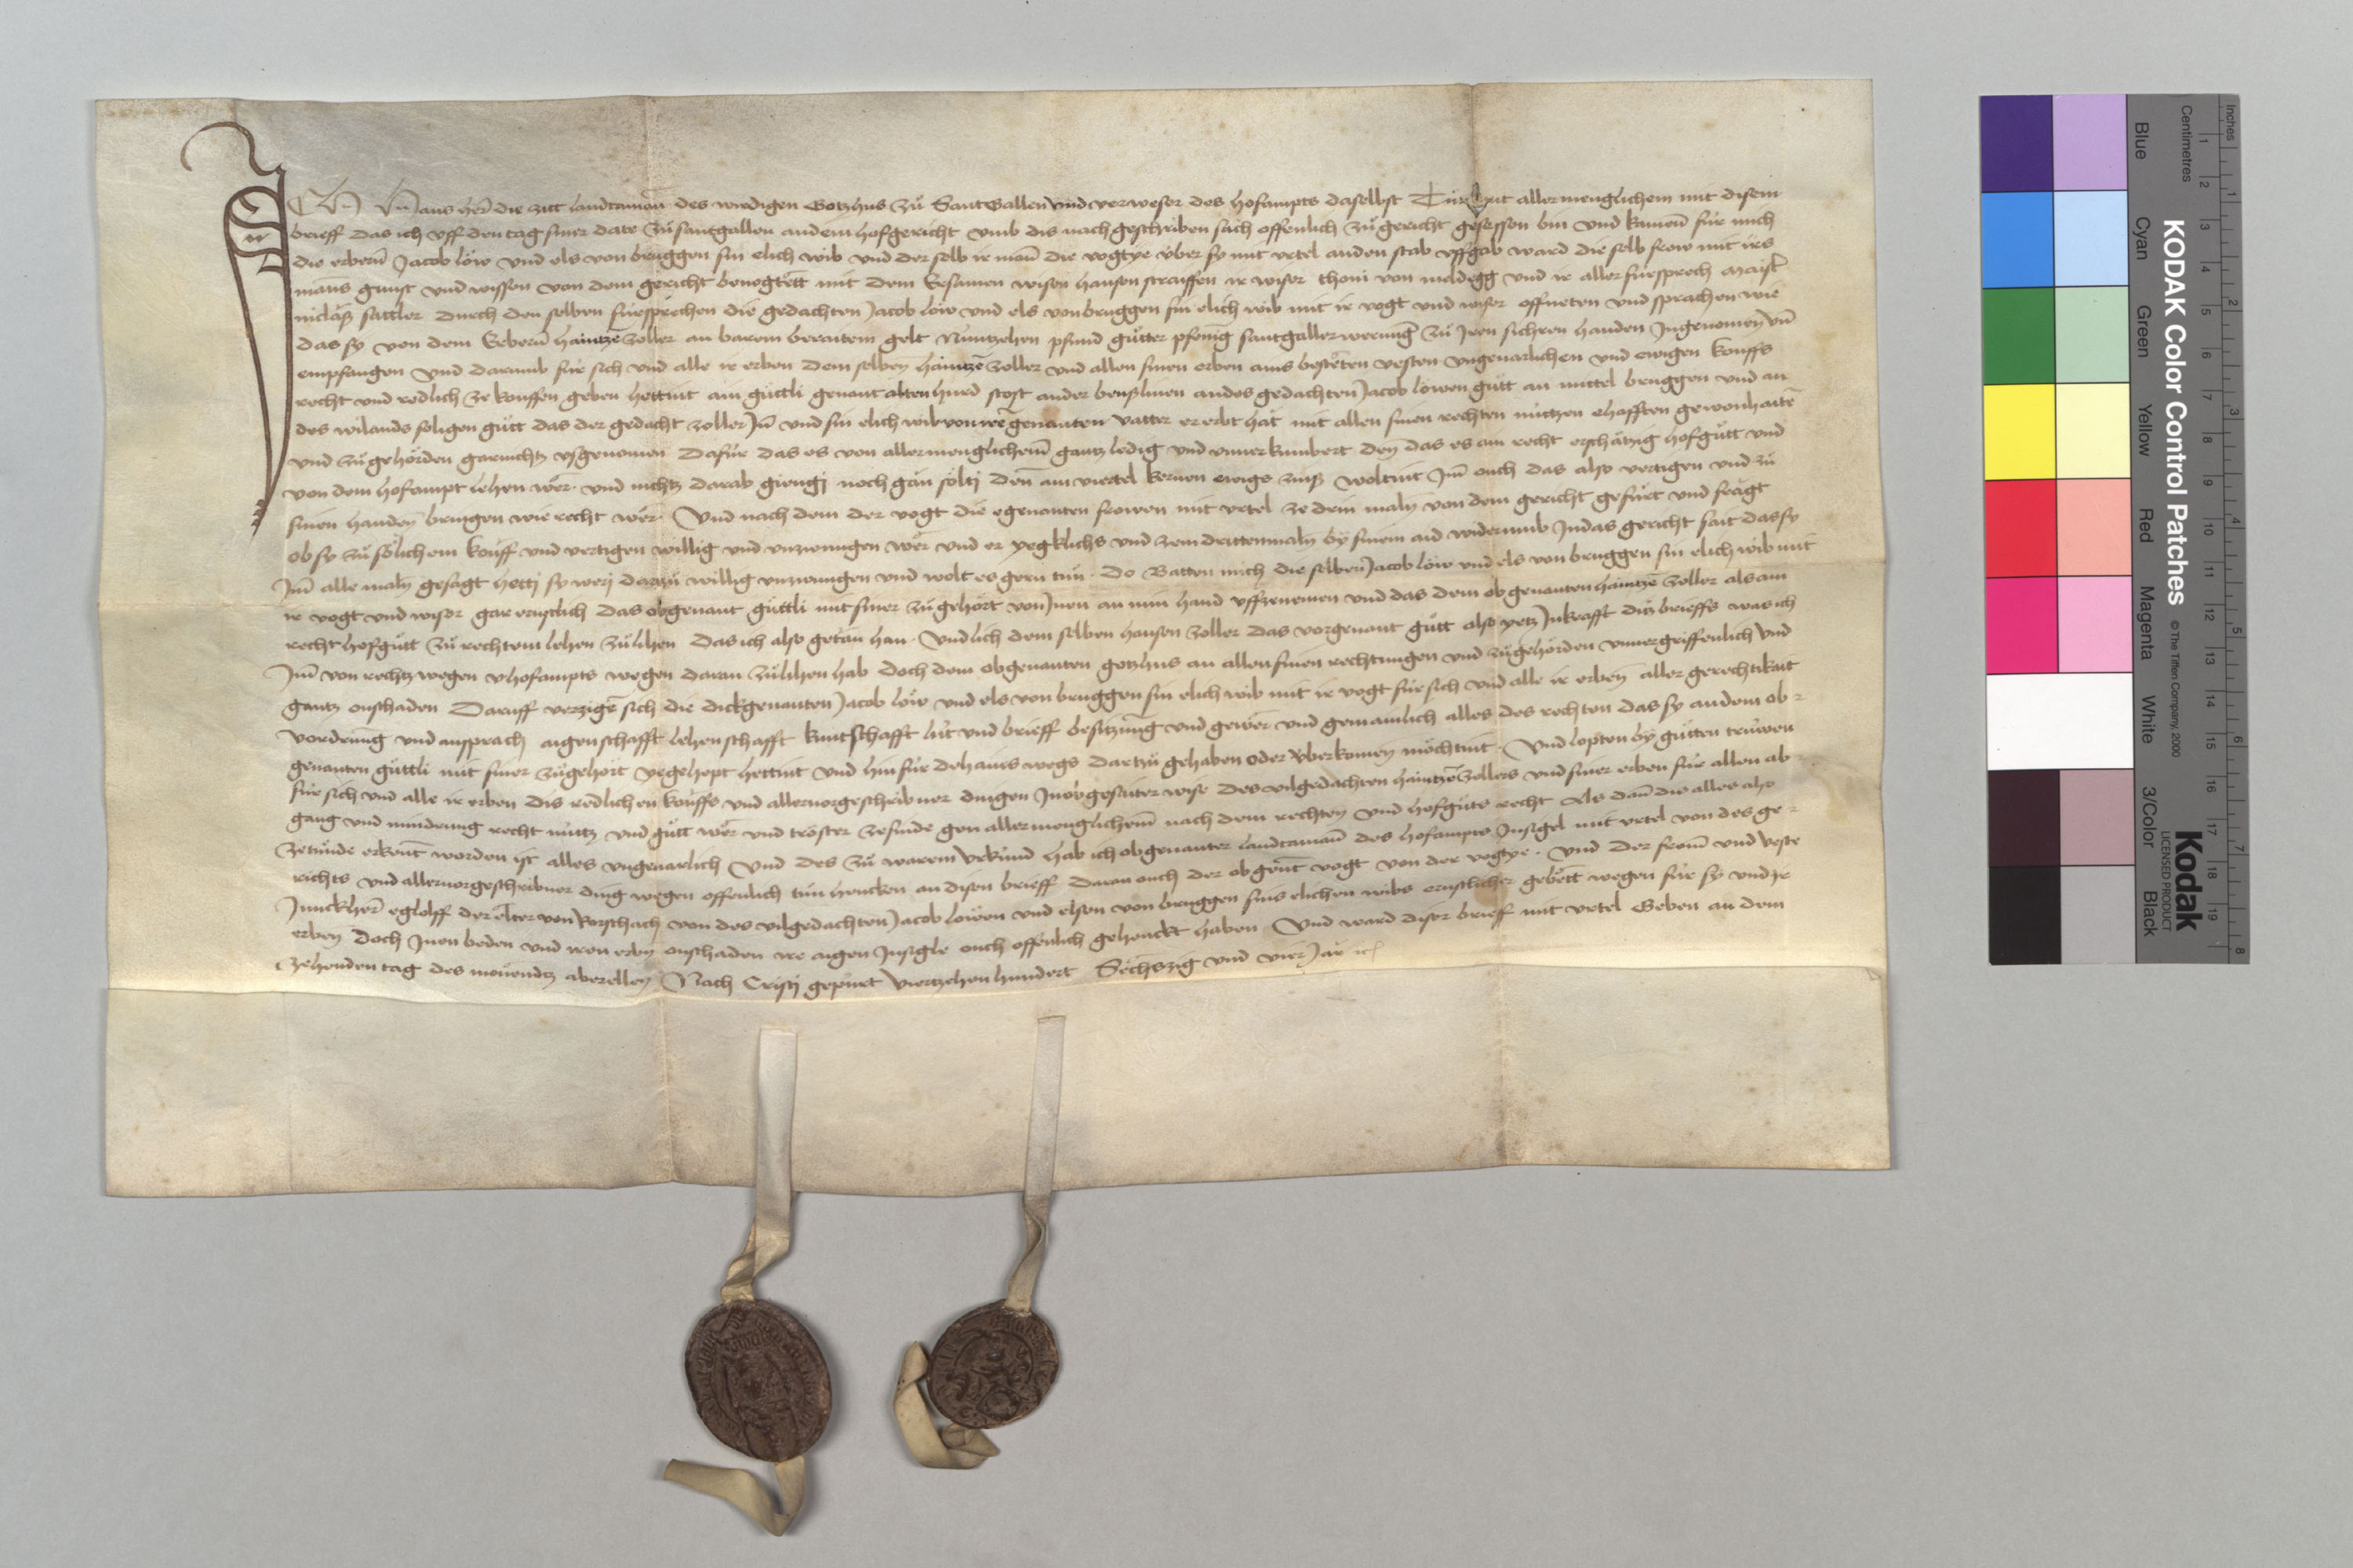 ICh Hans her die zitt landtaman des wirdigen Gotzhus zů Sant Gallen und verweser des hofampts daselbst Tůn kunt allermenglichem mit disem
brieff das ich uff den tag siner date zů santgallen an dem hofgericht umb dis nachgeschriben sach offenlich zů gericht gesessen bin und kament für mich
die erbern Jacob löw und els von bruggen sin elich wib und der selb ir man die vogtye über sy mit urtel an den stab uffgab ward die selb frow mit irs
mans gunst und wissen von dem gericht bevogtett mit dem Ersamen wisen hansen straiffen ir wiser thoni von meldegg und ir aller fürsprech maist
niclaß sattler durch den selben fürsprechen die gedachten Jacob löw und els von bruggen sin elich wib mit ir vogt und wiser offneten und sprachen wie
das sy von dem Erbern haintzen zoller an barem beraitem gelt Nüntzehen pfund gůtter pfening santgaller werung zů Jren sichren handen Jngenomen un
empfangen und darumb für sich und alle ir erben dem selben haintzen zoller und allen sinen erben ains bestëten vesten ungevarlichen und ewigen kouffs
recht und redlich ze kouffen geben hettint ain gůttli genant alten hurd stost an der an des gedachten Jacob löwen gůtt an mittel bruggen und an
des wilands seligen gůtt das der gedacht zoller Jn und sin elich wib von irem genanten vatter ererbt hát mit allen sinen rechten nutzen ehafften gewonhaiten
und zůgehörden garnichtz ußgenomen Dafür das es von allermenglichem gantz ledig und unverkumbert den das es ain recht erschätzig hofgůtt und
von dem hofampt lehen wër und nichtz darab giengj noch gän söltj denn ain viertel kernen ewigs zinß woltint Jm ouch das also vertigen und zů
sinen handen bringen wie recht wër Und nach dem der vogt die egenanten frowen mit urtel ze drin maln von dem gericht gefürt und frägt
ob sy zů sölichem kouff und vertigen willig und unzwungen wër und er yegklichs und zem dritten maln by sinem aid widerumb Jn das gericht sait das sy
Jm alle maln gesagt hettj sy werj dartzů willig unzwungen und wolt es gern tůn Do Batten mich die selben Jacob löw und els von bruggen sin elich wib mit
ir vogt und wiser gar ernstlich das obgenant gůttli mit siner zůgehört von Jnen an min hand uffzenemen und das dem obgenanten haintzen zoller als ain
recht hofgůtt zů rechtem lehen zů lihen das ich also getan han Und lich dem selben hansen zoller das vorgenant gůtt also yetz Jn krafft ditz brieffs was ich
Jm von rechtz wegen v hofampts wegen daran zů lihen hab doch dem obgenanten gotzhus an allen sinen rechtungen und zůgehörden unvergriffenlich und
gantz onschaden Daruff verzigen sich die dickgenanten Jacob löw und els von bruggen sin elich wib mit ir vogt für sich und alle ir erben aller gerechtikait
vordrung und ansprach aigenschafft lehenschafft kuntschafft lüt und brieff besitzung und gewër und gemainlich alles des rechten das sy an dem ob-
genanten gůttli mit siner zůgehört ye gehept hettint und hinfür dehains wegs dartzů gehaben oder überkomen möchtint Und lopten by gůtten trüwen
für sich und alle ir erben dis redlichen kouffs und aller vorgeschribner dingen Jn obgesaiter wise des vilgedachten haintzen zollers und siner erben für allen ab-
gang und mindrung recht nutz und gůtt wër und tröster ze sinde gen allermenglichem nach dem rechten und hofgůts recht Als dann dis alles also
ze tůnde erkent worden ist alles ungevarlich Und des zů warem urkünd hab ich obgenanter landtaman des hofampts Jnsigel mit urtel von des ge-
richts und aller vorgeschribner ding wegen offenlich tůn hencken an disen brieff daran ouch der obgent vogt von der vogtye und der from und veste
Junckher eglolff der elter von Rorschach von des vilgedachten Jacob löwen und elsen von bruggen sins elichen wibs ernstlicher gebett wegen für sy und ir
erben doch Jnen beden und iren erben onschaden ire aigen Jnsigle ouch offenlich gehenckt haben Und ward diser brieff mit urtel Geben an dem
zehenden tag des monendz aberellen Nach Cristj gepurt viertzehenhundert Sechszig und vier Jar ic
Inches
Centimetres
KODAK Color Control Patches
© The Tiffen Company, 2000
Kodak
LICENSED PRODUCT
Blue Cyan Green Yellow Red Magenta White 3/Color Black
1 2 3 4 5 6 7 8 9 10 11 12 13 14 15 16 17 18 19
1 2 3 4 5 6 7 8